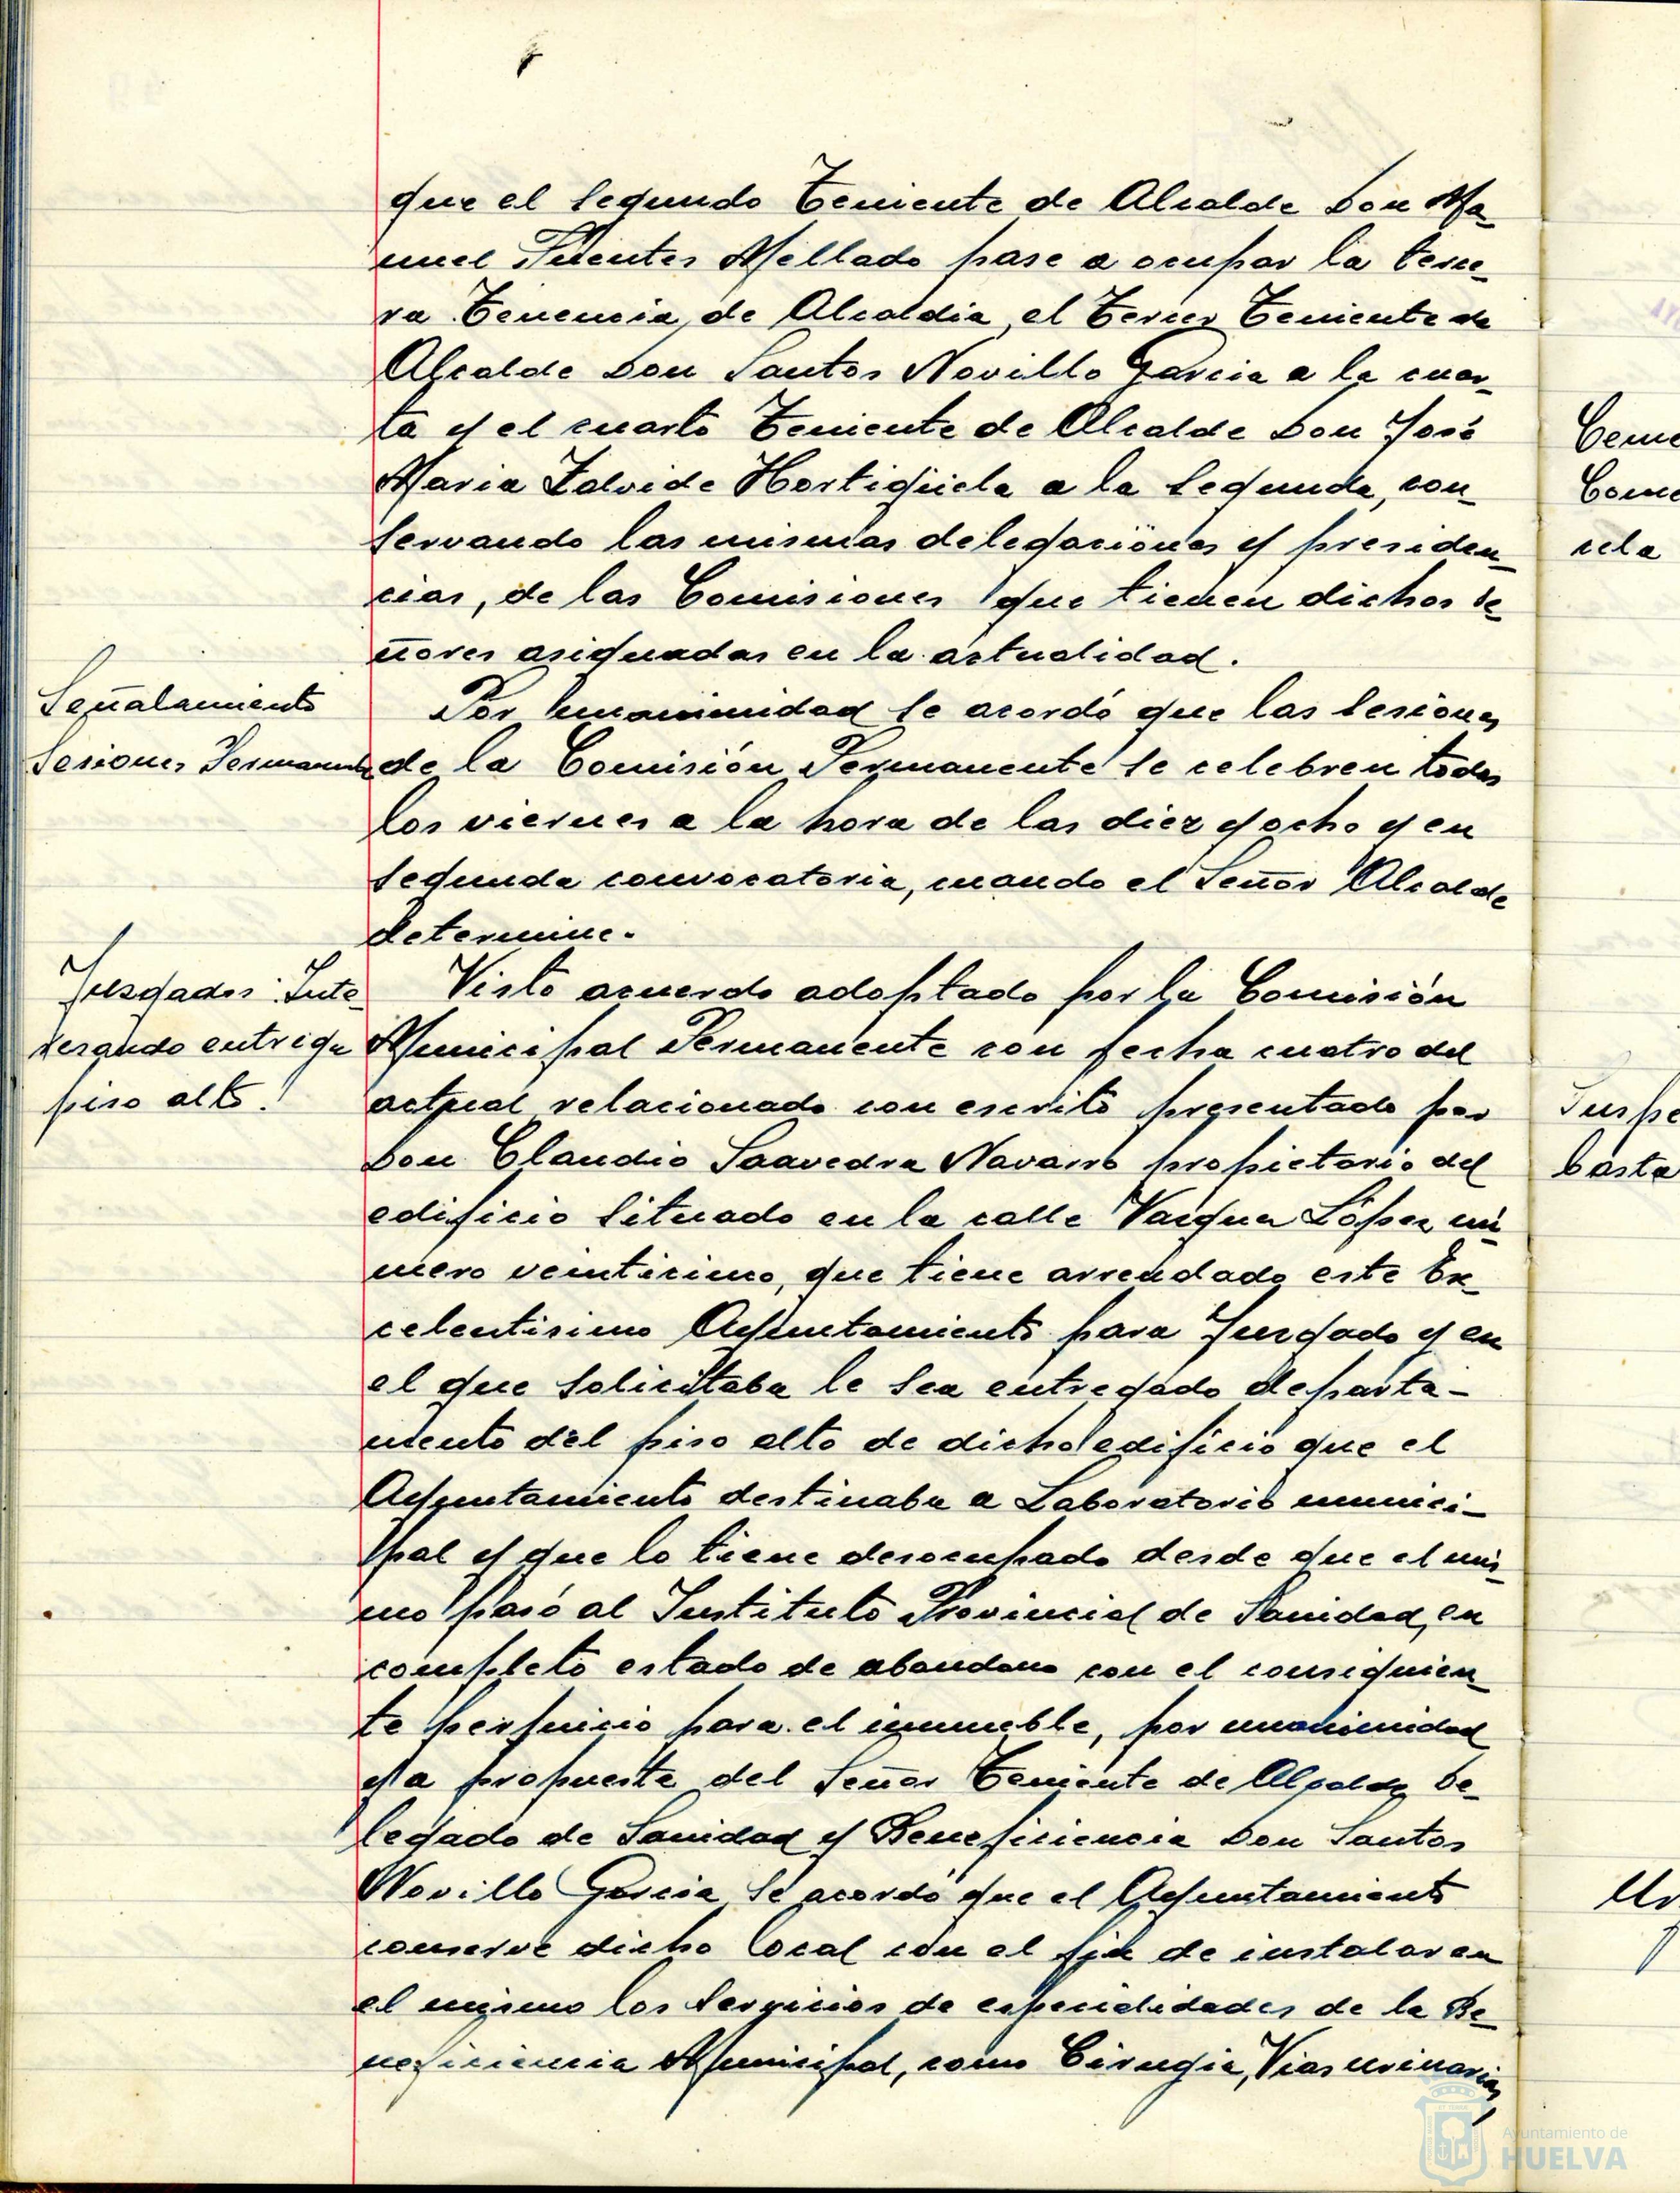 que el segundo Teniente de Alcalde Don Ma_
nuel Fuentes Mellado pase a ocupar la terce_
ra Tenencia de Alcaldia, el tercer Teniente de
Alcalde Don Santos Novillo Garcia a la cuar_
ta y el cuarto Teniente de Alcalde Don José
Maria Zalvide Hortigüela a la segunda, con_
servando las mismas delegaciones y presiden_
cias, de las Comisiones que tienen dichos se_
ñores asignadas en la actualidad.
Señalamiento
Sesiones Permanente
Por unanimidad se acordó que las sesiones
de la Comisión Permanente se celebren todos
los viernes a la hora de las diez y ocho y en
segunda convocatoria, cuando el Señor Alcalde
determine.
Juzgados: Inte_
resando entrega
piso alto.
Visto acuerdo adoptado por la Comisión
Municipal Permanente con fecha cuatro del
actual relacionado con escrito presentado por
Don Claudio Saavedra Navarro propietario del
edificio situado en la calle Vazquez López nú_
mero veinticinco, que tiene arrendado este Ex_
celentisimo Ayuntamiento para Juzgado y en
el que solicitaba le sea entregado departa-
mento del piso alto de dicho edificio que el
Ayuntamiento destinaba a Laboratorio munici-
pal y que lo tiene desocupado desde que el mis_
mo pasó al Instituto Provincial de Sanidad, en
completo estado de abandono con el consiguien_
te perjuicio para el inmueble, por unanimidad
y a propuesta del Señor Teniente de Alcalde De_
legado de Sanidad y Beneficiencia Don Santos
Novillo Garcia se acordó que el Ayuntamiento
conserve dicho local con el fin de instalar en
el mismo los servicios de especialidades de la Be_
neficiencia Municipal, como Cirugia, Vias urinarias,
cela
basta
Ayuntamiento de
HUELVA